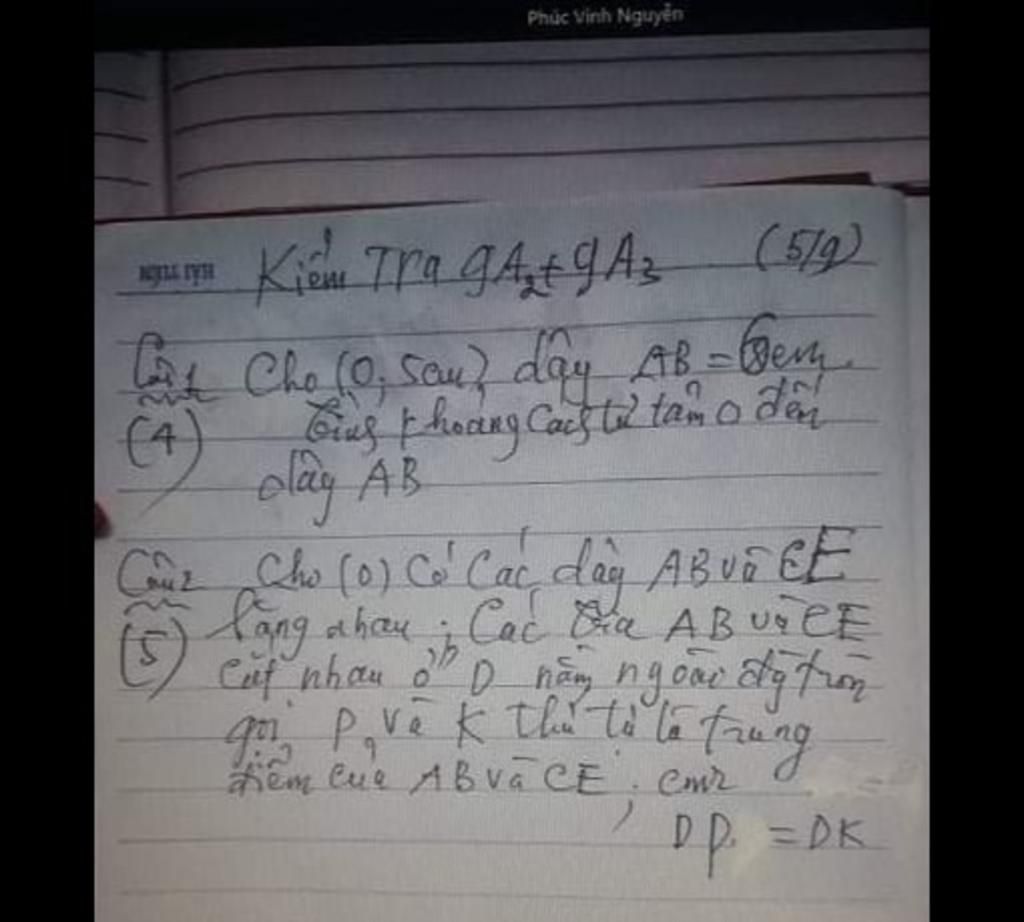 Phúc Vinh Nguyễn
Kiểm Tra 9A2+9A3 (5/9)
Câu1 Cho (O, 5cm) dây AB = 8cm.
(4) Tính khoảng cách từ tâm O đến
dây AB
Câu2 Cho (O) có các dây AB và CE
(5) bằng nhau; Các tia AB và CE
cắt nhau ở D nằm ngoài đg tròn
gọi P và K thứ tự là trung
điểm của AB và CE; cmr
DP = DK